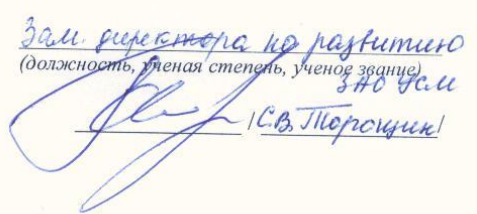 Зам. директора по развитию
(должность, ученая степень, ученое звание)
ЗАО УСМ
/С.В. Торощин/